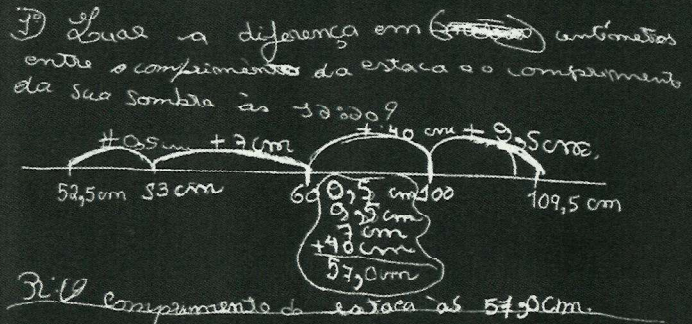 1º) Qual a diferença em centímetros
entre o comprimento da estaca e o comprimento
da sua sombra às
+ 0,5 cm + 7 cm + 40 cm + 9,5 cm
52,5 cm 53 cm 60 100 109,5 cm
0,5 cm
9,5 cm
7 cm
+40 cm
57,0 cm
R: O comprimento da estaca às 57,0 cm.